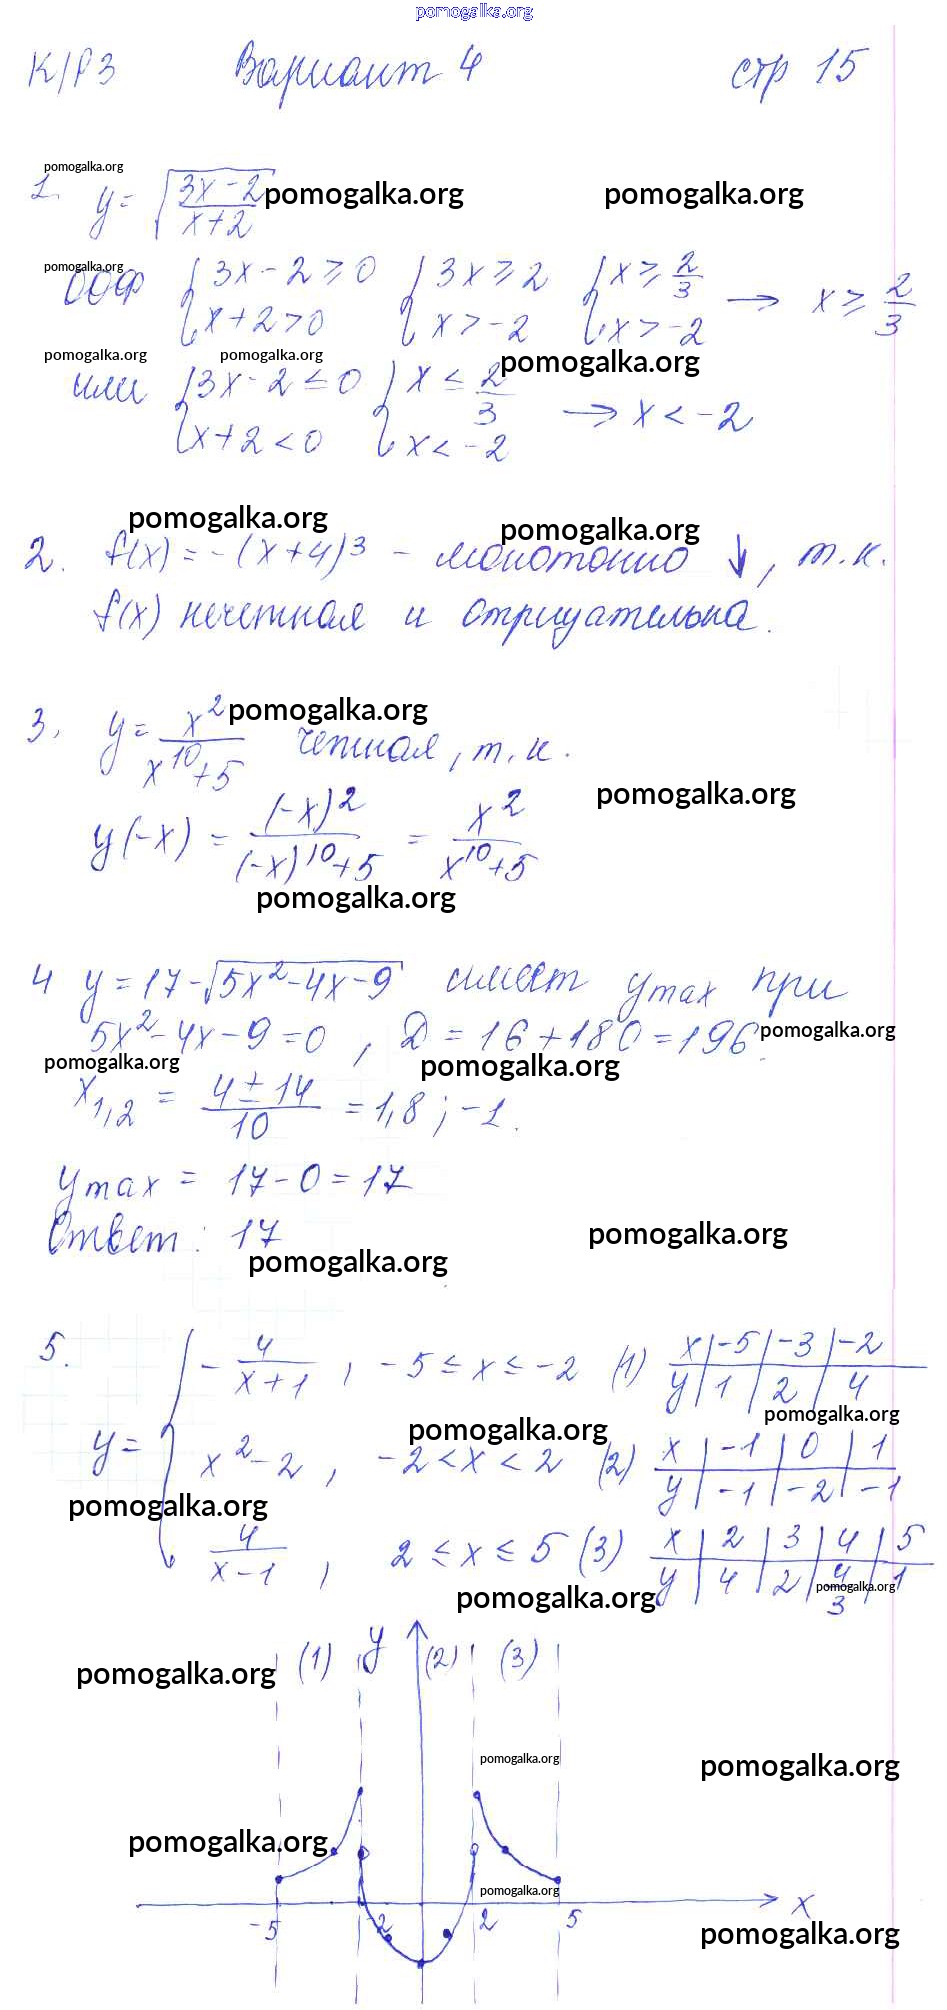 pomogalka.org
К/Р 3 Вариант 4 стр 15
pomogalka.org
1. y = √((3x-2)/(x+2)) pomogalka.org pomogalka.org
pomogalka.org
ООФ {3x-2≥0 {3x≥2 {x≥2/3
{x+2>0 {x>-2 {x>-2 → x≥2/3
pomogalka.org pomogalka.org pomogalka.org
или {3x-2≤0 {x≤2/3
{x+2<0 {x<-2 → x<-2
pomogalka.org pomogalka.org
2. f(x) = -(x+4)³ - монотонно ↓, т.к.
f(x) нечетная и отрицательна.
3. y = x²/(x¹⁰+5) pomogalka.org четная, т.к.
pomogalka.org
y(-x) = (-x)²/((-x)¹⁰+5) = x²/(x¹⁰+5)
pomogalka.org
4 y = 17-√(5x²-4x-9) имеет ymax при
5x²-4x-9=0, D=16+180=196. pomogalka.org
pomogalka.org pomogalka.org
x1,2 = (4±14)/10 = 1,8; -1.
ymax = 17-0=17
Ответ: 17 pomogalka.org
pomogalka.org
5. y = { -4/(x+1), -5≤x≤-2 (1) x|-5|-3|-2
y|1|2|4
pomogalka.org pomogalka.org
x²-2, -2<x<2 (2) x|-1|0|1
y|-1|-2|-1
pomogalka.org
4/(x-1), 2≤x≤5 (3) x|2|3|4|5
y|4|2|4/3|1
pomogalka.org pomogalka.org
(1) y (2) (3)
pomogalka.org
pomogalka.org pomogalka.org
pomogalka.org
pomogalka.org
-5 -2 2 5 x
pomogalka.org